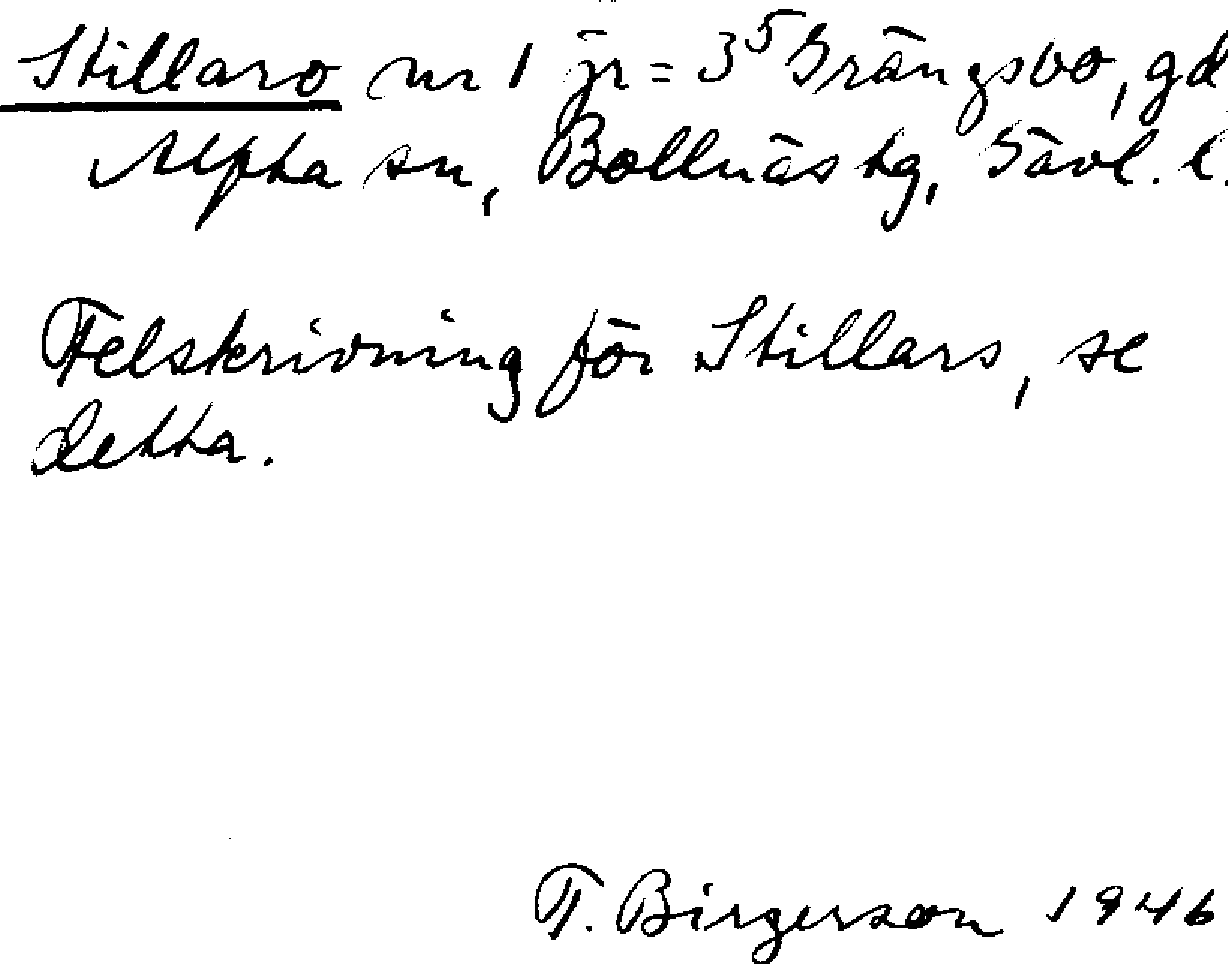 Stillaro nr 1 jr = 3⁵ Grängsbo, gd
Alfta sn, Bollnäs tg, Gävl. l.
Felskrivning för Stillars, se
detta.
F. Birgerson 1946